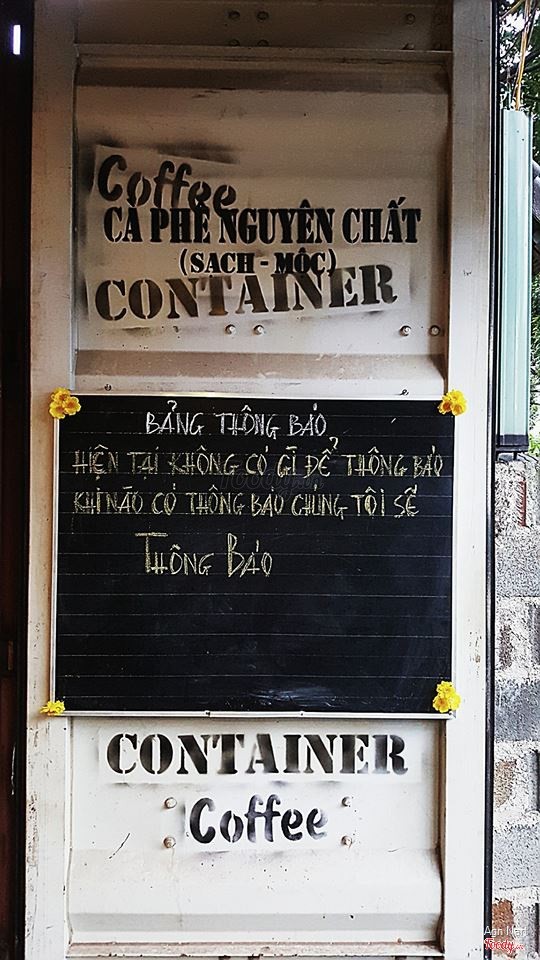 Coffee
CÀ PHÊ NGUYÊN CHẤT
(SẠCH - MỘC)
CONTAINER
BẢNG THÔNG BÁO
HIỆN TẠI KHÔNG CÓ GÌ ĐỂ THÔNG BÁO
KHI NÀO CÓ THÔNG BÁO CHÚNG TÔI SẼ
THÔNG BÁO
CONTAINER
Coffee
Foody.vn